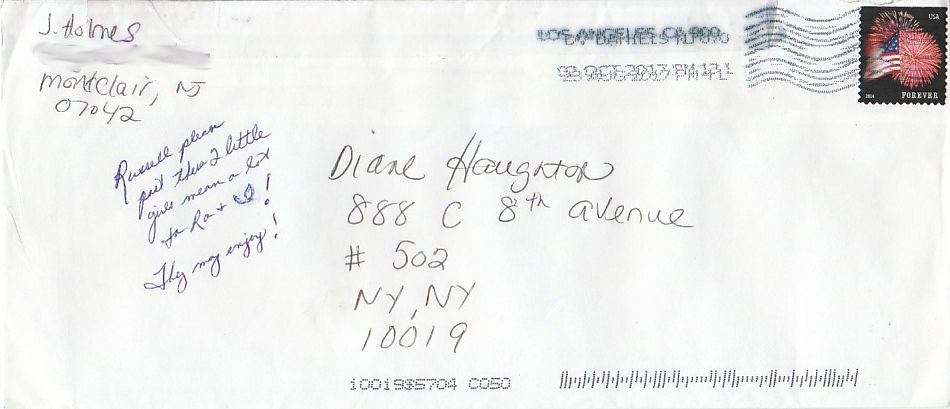 J. Holmes
Montclair, NJ
07042
LOS ANGELES CA 900
USA
2014 FOREVER
Russell please
post these 2 little
gives mean a lot
to Ra +
They may enjoy!
Diane Haughton
888 C 8th avenue
# 502
NY, NY
10019
10019$5704 C050